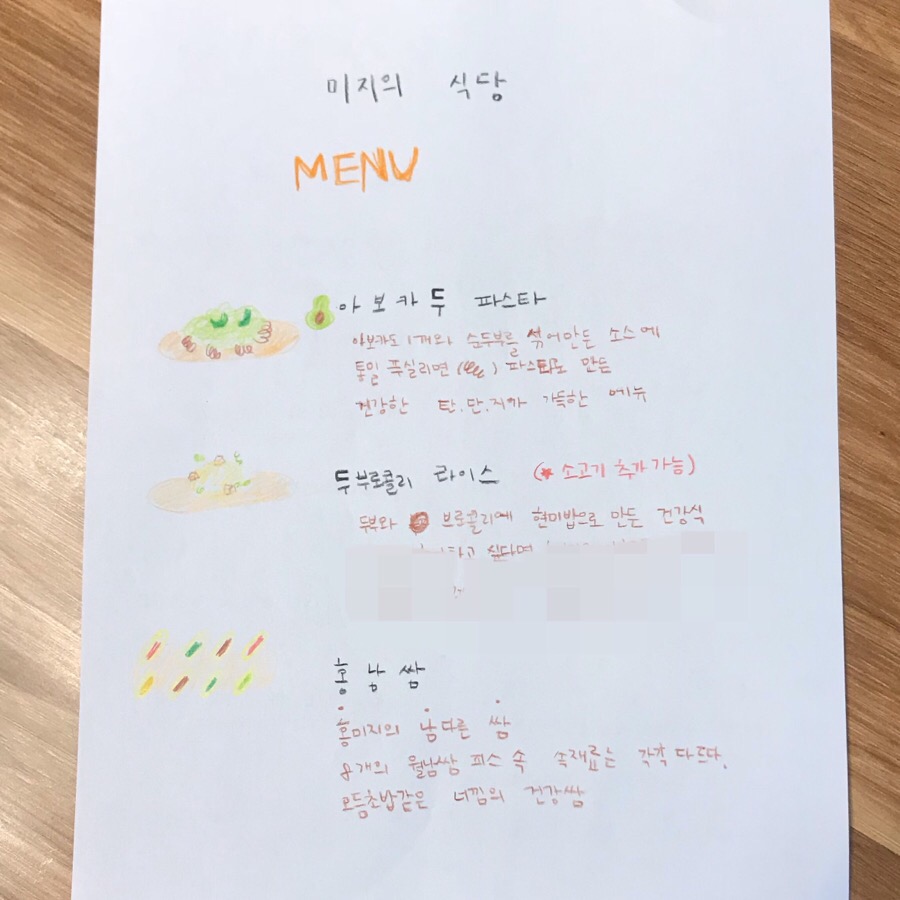 미지의 식당
MENU
아보카두 파스타
아보카도 1개와 순두부를 섞어만든 소스에
통밀 푸실리면 ( ) 파스타로 만든
건강한 탄.단.지가 가득한 메뉴
두부로콜리 라이스 (* 소고기 추가 가능)
두부와 브로콜리에 현미밥으로 만든 건강식
싶다면
홍낭쌈
홍미지의 남다른 쌈
8개의 월남쌈 피스 속 속재료는 각각 다르다.
모듬초밥같은 너낌의 건강쌈